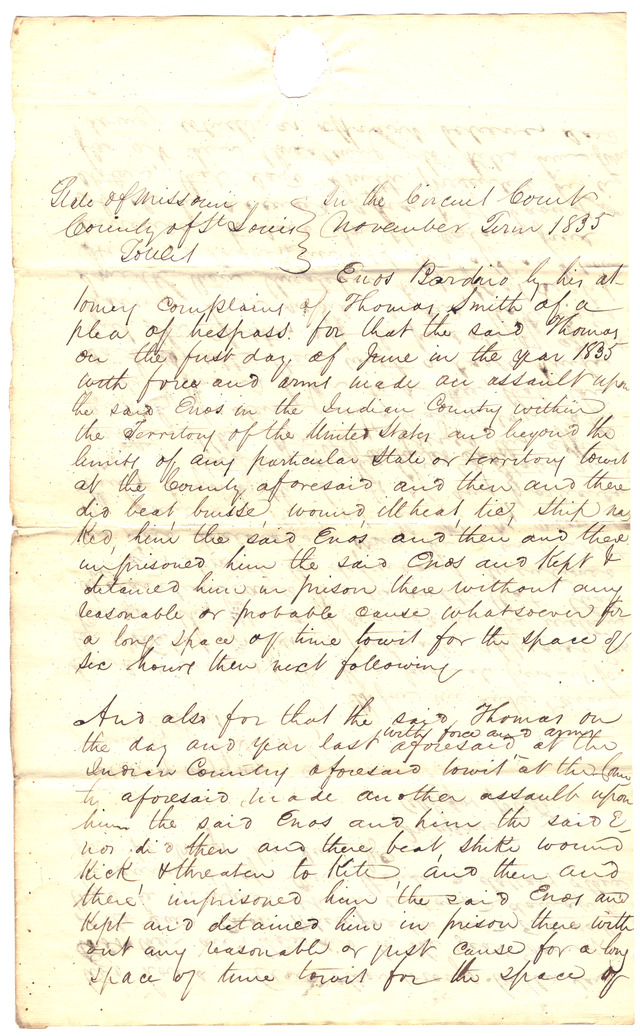 State of Missouri } In the Circuit Court
County of St Louis } November Term 1835
Towit }
Enos Bardno by his at-
torney complains of Thomas Smith of a
plea of trespass. for that the said Thomas
on the first day of June in the year 1835
with force and arms made an assault upon
the said Enos in the Indian Country within
the Territory of the United States and beyond the
limits of any particular State or territory towit
at the County aforesaid and then and there
did beat bruise, wound, illtreat, tie, strip na
ked, him, the said Enos, and then and there
imprisoned him the said Enos and Kept &
detained him in prison there without any
reasonable or probable cause whatsoever for
a long space of time towit for the space of
six hours then next following
And also for that the said Thomas on
the day and year last aforesaid with force and arms at the
Indian Country aforesaid towit at the Coun
ty aforesaid, made another assault upon
him the said Enos and him the said E-
nos did then and there beat strike wound
Kick & threaten to Kill, and then and
there imprisoned him the said Enos and
Kept and detained him in prison there with
out any reasonable or just cause for a long
space of time towit for the space of